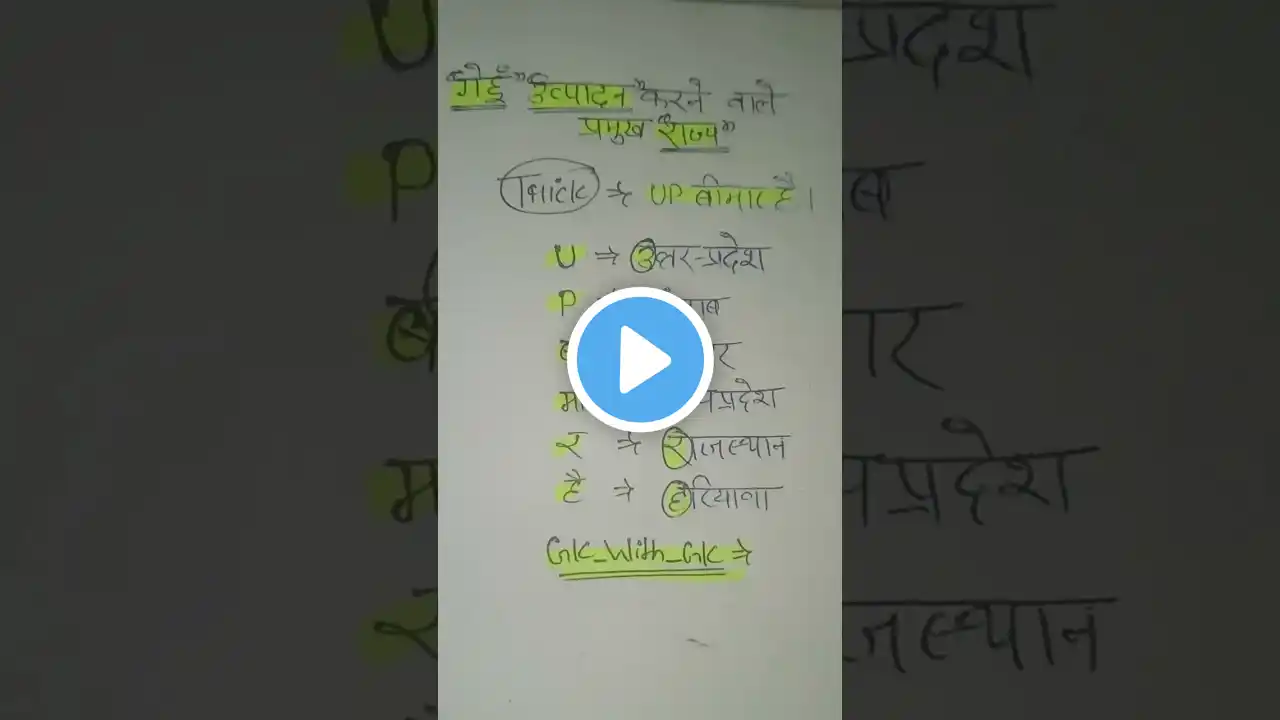 "गेहूँ" "उत्पादन" करने वाले
प्रमुख "राज्य"
Trick ⇒ UP बीमार है।
U ⇒ उत्तर-प्रदेश
P
मा प्रदेश
र ⇒ राजस्थान
है ⇒ हरियाणा
GK_With_GK ⇒